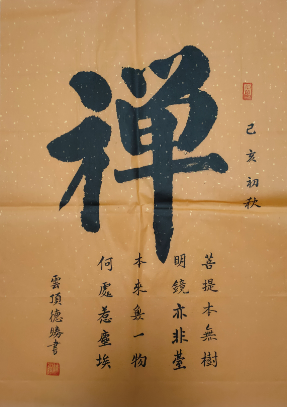 禅
己亥初秋
菩提本無樹
明鏡亦非臺
本來無一物
何處惹塵埃
雲頂德勝書